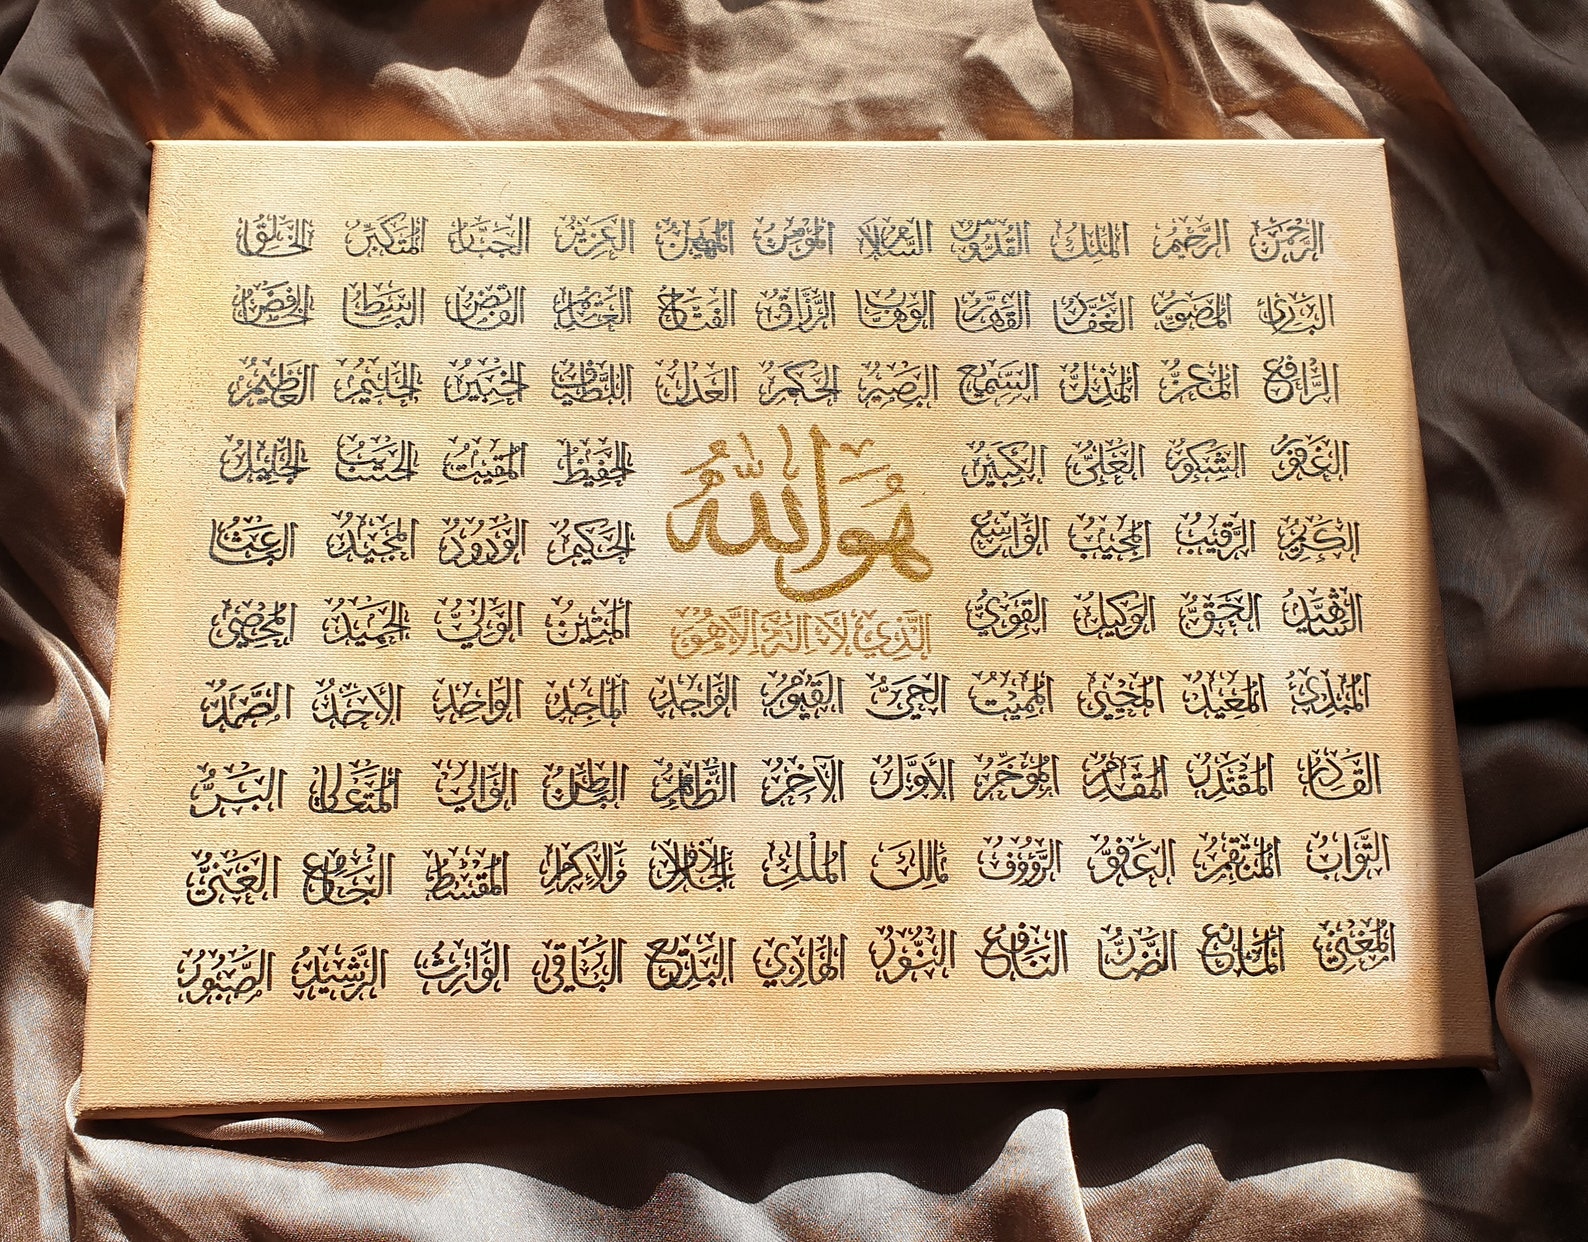 الرحمن الرحيم الملك القدوس السلام المؤمن المهيمن العزيز الجبار المتكبر الخالق
البارئ المصور الغفار القهار الوهاب الرزاق الفتاح العليم القابض الباسط الخافض
الرافع المعز المذل السميع البصير الحكم العدل اللطيف الخبير الحليم العظيم
الغفور الشكور العلي الكبير الحفيظ المقيت الحسيب الجليل
هُوَ الله
الكريم الرقيب المجيب الواسع الحكيم الودود المجيد الباعث
الشهيد الحق الوكيل القوي المتين الولي الحميد المحصي
الذي لا اله الا هو
المبدئ المعيد المحيي المميت الحي القيوم الواجد الماجد الواحد الاحد الصمد
القادر المقتدر المقدم المؤخر الأول الآخر الظاهر الباطن الوالي المتعالي البر
التواب المنتقم العفو الرؤوف مالك الملك الجلال والاكرام المقسط الجامع الغني
المغني المانع الضار النافع النور الهادي البديع الباقي الوارث الرشيد الصبور